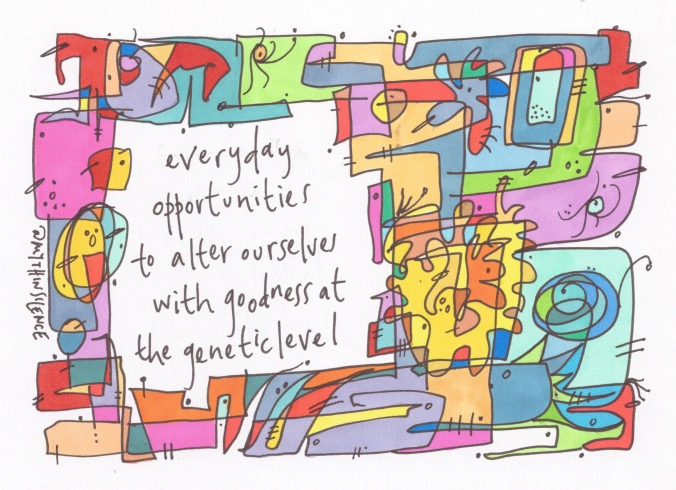 everyday
opportunities
to alter ourselves
with goodness at
the genetic level
@MYTHINSILENCE